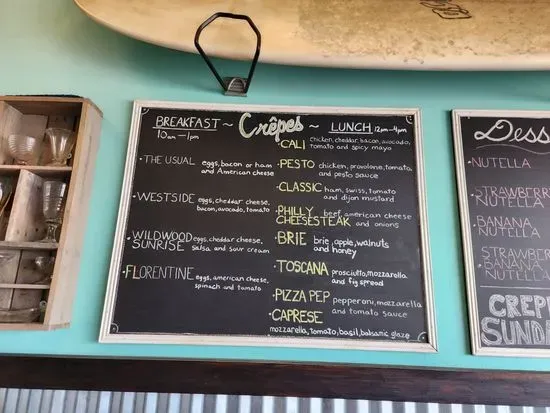 BREAKFAST ~ Crêpes ~ LUNCH 12pm-4pm
10am-1pm
THE USUAL eggs, bacon or ham
and American cheese
WESTSIDE eggs, cheddar cheese,
bacon, avocado, tomato
WILDWOOD
SUNRISE eggs, cheddar cheese,
salsa and sour cream
FLORENTINE eggs, american cheese,
spinach and tomato
CALI chicken, cheddar, bacon, avocado,
tomato and spicy mayo
PESTO chicken, provolone, tomato,
and pesto sauce
CLASSIC ham, swiss, tomato
and dijon mustard
PHILLY
CHEESESTEAK beef, american cheese
and onions
BRIE brie, apple, walnuts
and honey
TOSCANA prosciutto, mozzarella
and fig spread
PIZZA PEP pepperoni, mozzarella
and tomato sauce
CAPRESE
mozzarella, tomato, basil, balsamic glaze
Dess
NUTELLA
STRAWBERR
NUTELLA
BANANA
NUTELLA
STRAWB
BANANA
NUTELLA
CREP
SUND